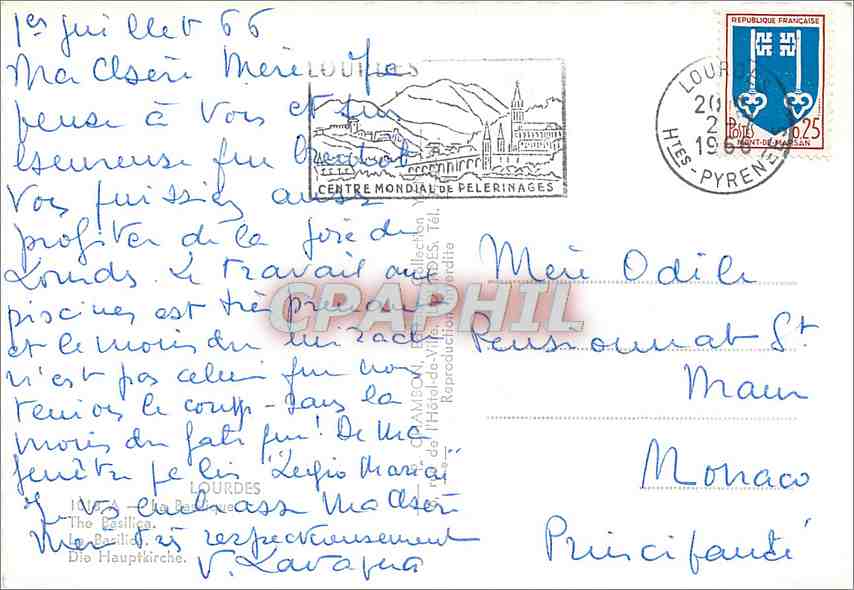 1er Juillet 66
Ma Chère Mère Je
pense à Vous et suis
heureuse que bientôt
Vous puissiez aussi
profiter de la joie de
Lourdes. Le travail aux
piscines est très prenant
et le moins du miracle
n'est pas celui que nous
tenions le coup - sans la
moindre fatigue! De ma
fenêtre je lis "Legio Mariae"
Je vs embrasse Ma Chère
Mère très respectueusement
V. Lavagna
LOURDES
CENTRE MONDIAL DE PELERINAGES
REPUBLIQUE FRANÇAISE
POSTES 0,25
MONT-DE-MARSAN
LOURDES
1966
HTES-PYRENEES
Mère Odile
Pensionnat St
Maur
Monaco
Principauté
CHAMBON, Collection
de l'Hôtel-de-Ville, LOURDES. Tél.
Reproduction interdite
LOURDES
1010 A — La Basilique
The Basilica.
La Basilica.
Die Hauptkirche.
CPAPHIL